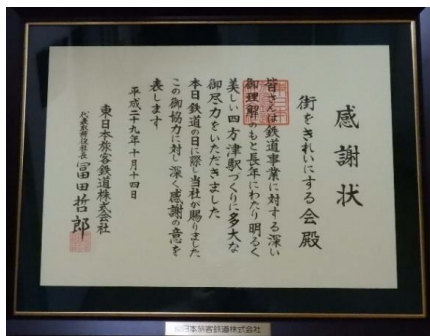 感謝状
街をきれいにする会殿
皆さんは鉄道事業に対する深い
御理解のもと長年にわたり明るく
美しい四方津駅づくりに多大な
御尽力をいただきました
本日鉄道の日に際し当社が賜りました
この御協力に対し深く感謝の意を
表します
平成二十九年十月十四日
東日本旅客鉄道株式会社
代表取締役社長 冨田哲郎
東日本旅客鉄道株式会社